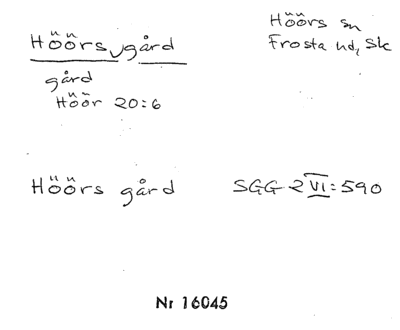 Höörs gård
Höörs sn
Frosta hd, Sk
gård
Höör 20:6
Höörs gård
SGG 2 VI:590
Nr 16045